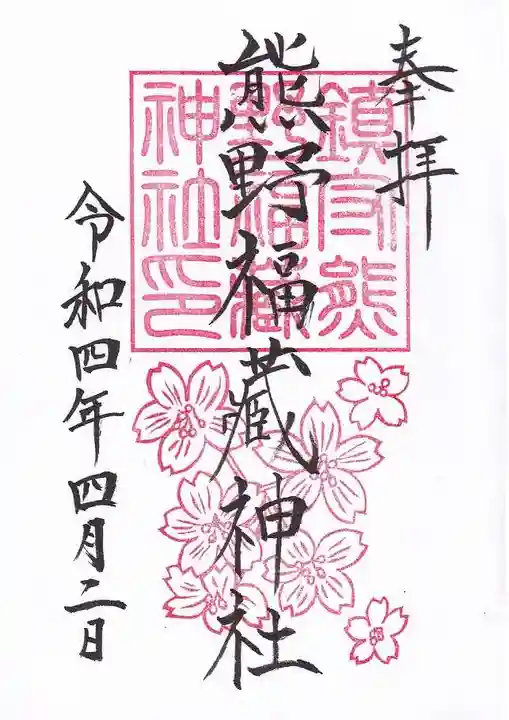 奉拝
熊野福藏神社
令和四年四月二日
鎮守熊
野福藏
神社印